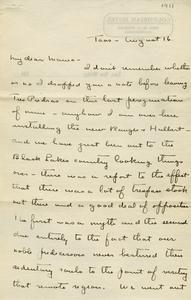 1911
COLUMBIAN HOTEL
Taos - August 16.
My dear Mama -
I don't remember whether
or no I dropped you a note before leaving
Tres Piedras on this last peregrination
of mine - anyhow I am over here
installing the new Ranger - Hulbert -
and we have just been out to the
Black Lakes country looking things
over - there was a report to the effect
that there was a lot of trespass stock
out there and a good deal of opposition
The first was a myth and the second
due entirely to the fact that our
noble predecessors never bestirred their
sedentary souls to the point of visiting
that remote region. We went out